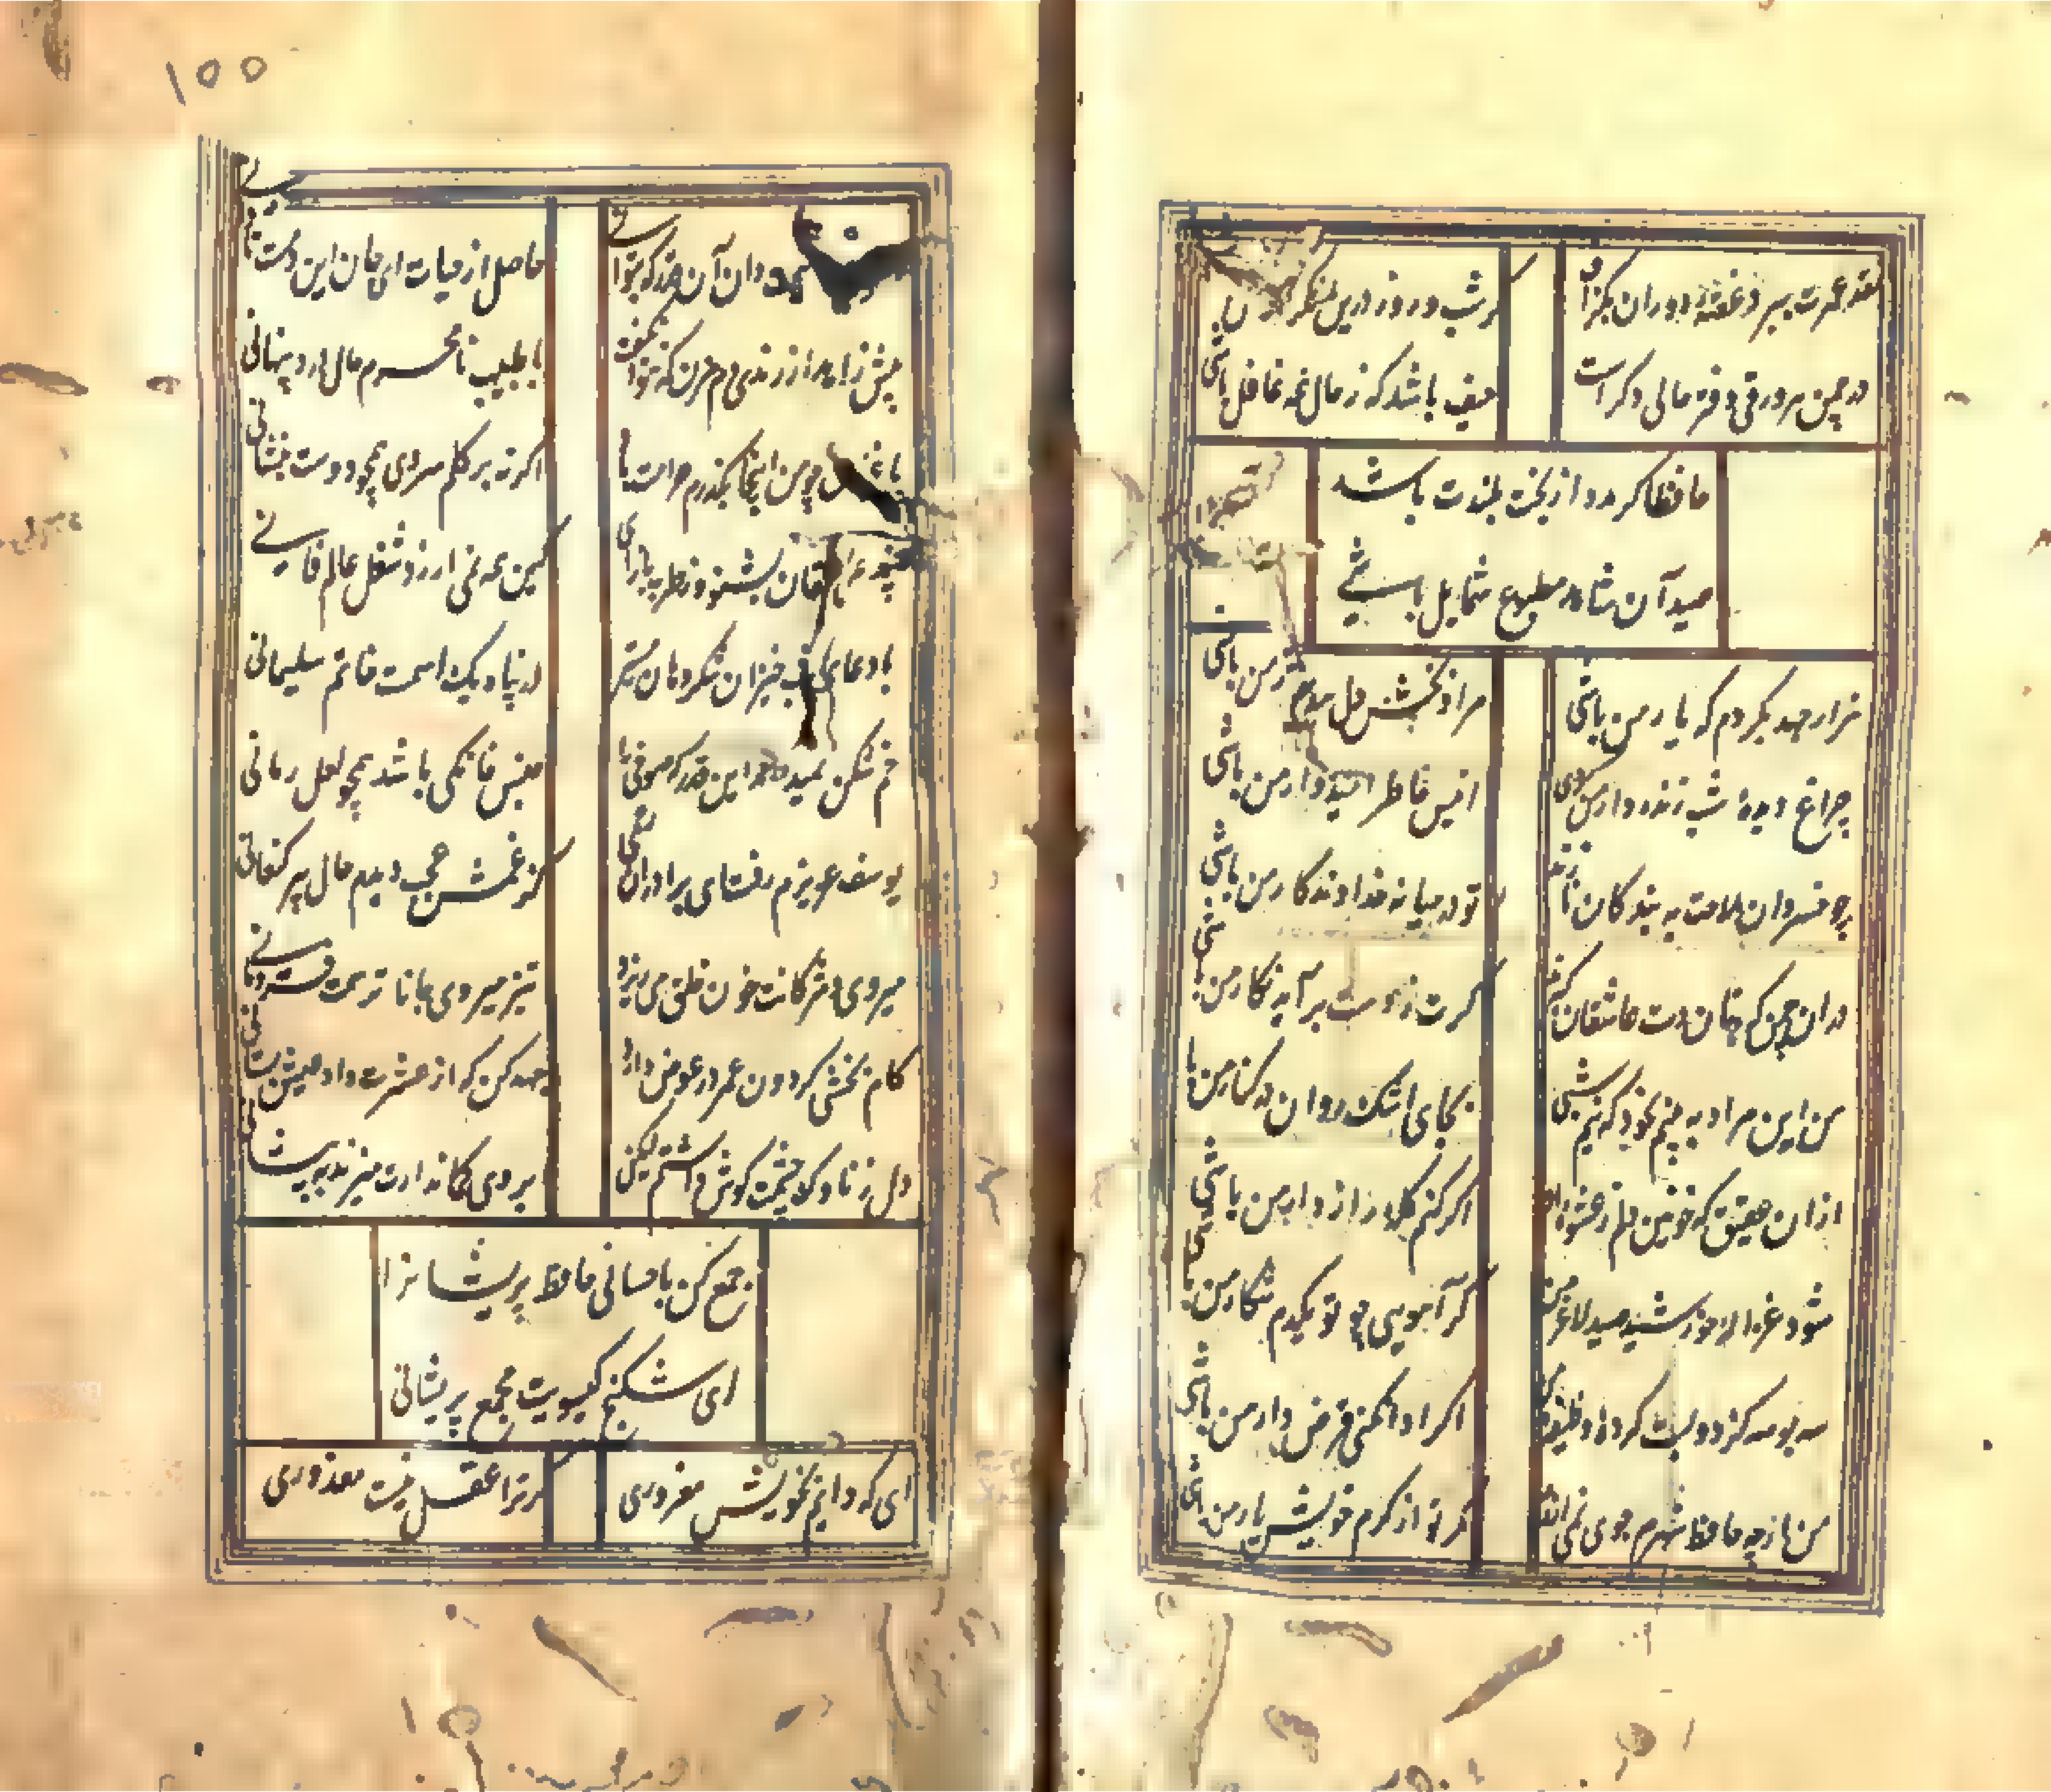 نقد عمرت ببرد غصهٔ دوران بگزاف
گر شب و روز درین
در چمن هر ورقی دفتر حالی دگر است
حیف باشد که ز حال همه غافل باشی
حافظا گر مدد از بخت بلندت باشد
صید آن شاهد مطبوع شمایل باشی
هزار جهد بکردم که یار من باشی
مراد بخش دل من باشی
چراغ دیدهٔ شب زنده دار من کردی
انیس خاطر امیدوار من باشی
چو خسروان ملاحت به بندکان نازند
تو در میانه خداوندکار من باشی
در ان چمن که بتان دست عاشقان گیرند
گرت ز دست بر آید نکار من باشی
من این مراد به بینم بخود که نیم شبی
بجای اشک روان در کنار من باشی
ازان عقیق که خونین دلم ز عشوه او
اگر کنم کله راز دار من باشی
شود غزاله خورشید صید لاغر من
گر آهویی چو تو یکدم شکار من باشی
سه بوسه کز دو لبت کرده وظیفه من
اگر ادا نکنی قرض دار من باشی
من ار چه حافظ شهرم جوی نمی ارزم
مگر تو از کرم خویش یار من باشی
۱۵۵
دان آن قدر که بتوانی
حاصل از حیات ای جان این دمست تا دانی
پیش زاهد از رندی دم مزن که نتوان گفت
با طبیب نامحرم حال درد پنهانی
باغبان چو من اینجا بگذرم حرامت باد
اگر بر گلم سروی همچو دوست بنشانی
پند عاشقان بشنو وز طرب باز آی
کین همه نمی ارزد شغل عالم فانی
با دعای شب خیزان ای شکر دهان مستیز
در پناه یک اسمست خاتم سلیمانی
خم شکن نمیداند این قدر که صوفی را
جنس خانگی باشد همچو لعل رمانی
یوسف عزیزم رفت ای برادران رحمی
کز غمش عجب دیدم حال پیر کنعانی
میروی و مژگانت خون خلق می ریزد
تیز میروی جانا ترسمت فرو مانی
کام بخشی گردون عمر در عوض دارد
جهد کن که از عشرت داد عیش بستانی
دل ز ناوک چشمت گوش داشتم لیکن
ابروی کماندارت میزند به پیشانی
جمع کن باحسانی حافظ پریشانرا
ای شکنج گیسویت مجمع پریشانی
ای که دایم بخویش مغروری
گر ترا عقل نیست معذوری